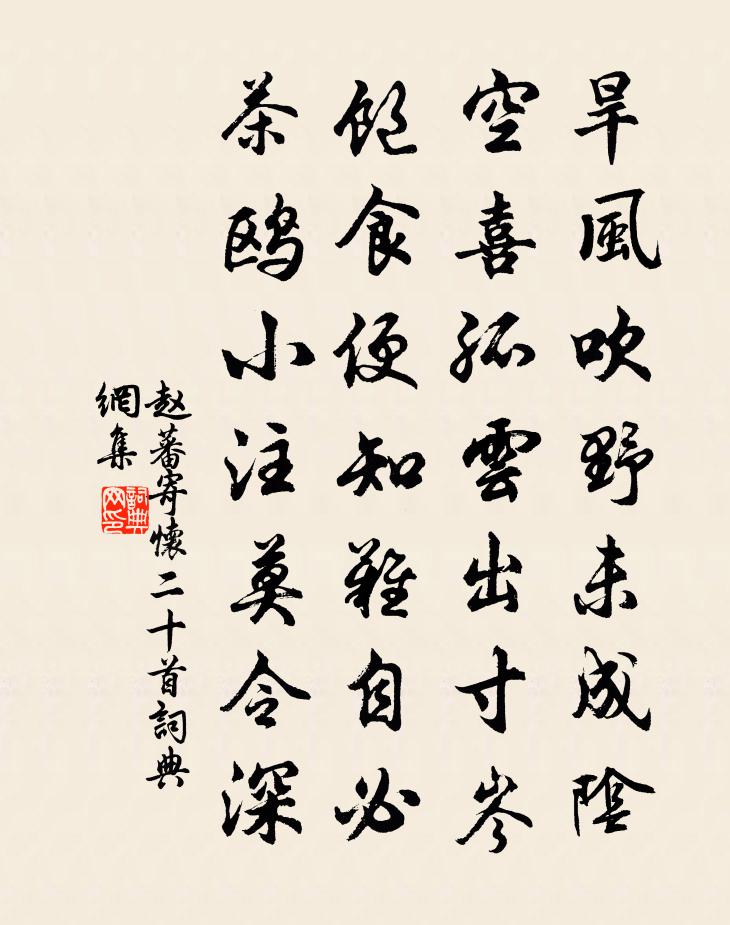 旱風吹野未成陰
空喜孤雲出寸岑
飽食便知難自必
茶鸥小注莫令深
赵蕃寄懷二十首詞典
網集
詞典网印